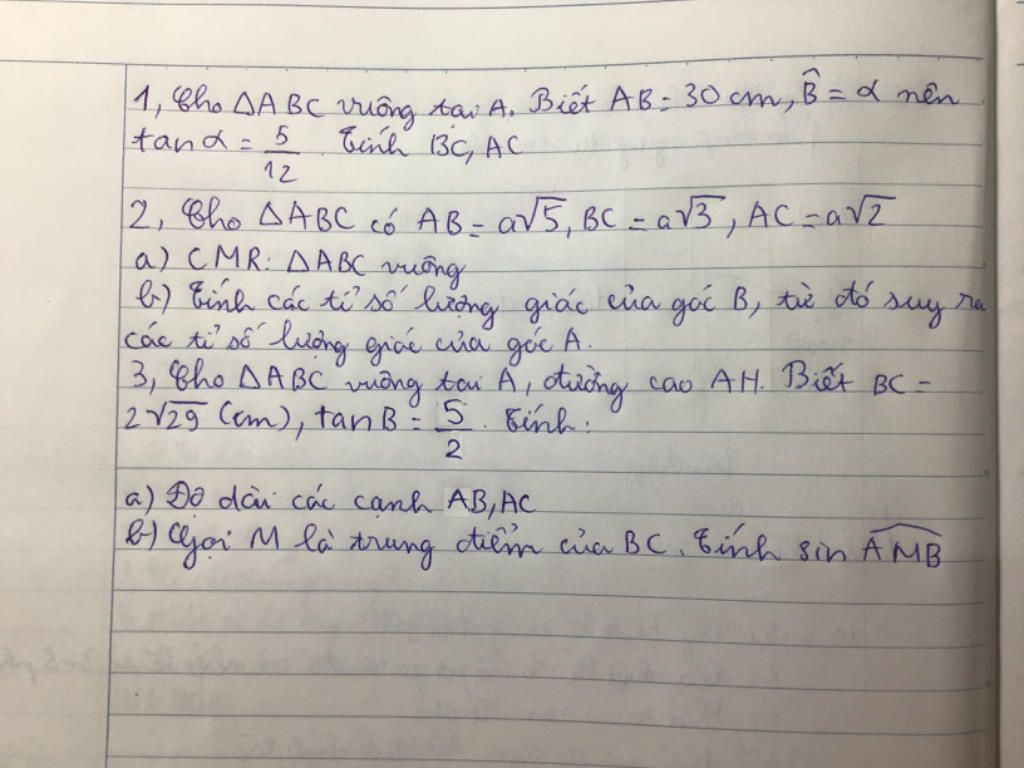 1, Cho ΔABC vuông tại A. Biết AB = 30 cm, B̂ = α nên
tanα = 5/12. Tính BC, AC
2, Cho ΔABC có AB = a√5, BC = a√3, AC = a√2
a) CMR: ΔABC vuông
b) Tính các tỉ số lượng giác của góc B, từ đó suy ra
các tỉ số lượng giác của góc A.
3, Cho ΔABC vuông tại A, đường cao AH. Biết BC =
2√29 (cm), tanB = 5/2. Tính:
a) Độ dài các cạnh AB, AC
b) Gọi M là trung điểm của BC. Tính sin ∠AMB